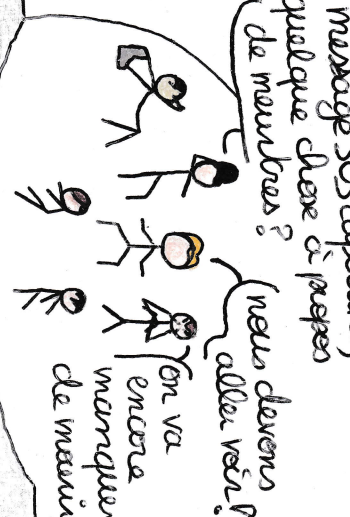 message SOS
quelque chose à propos
de meurtres?
nous devons
aller voir!
on va
encore
manquer
de mourir